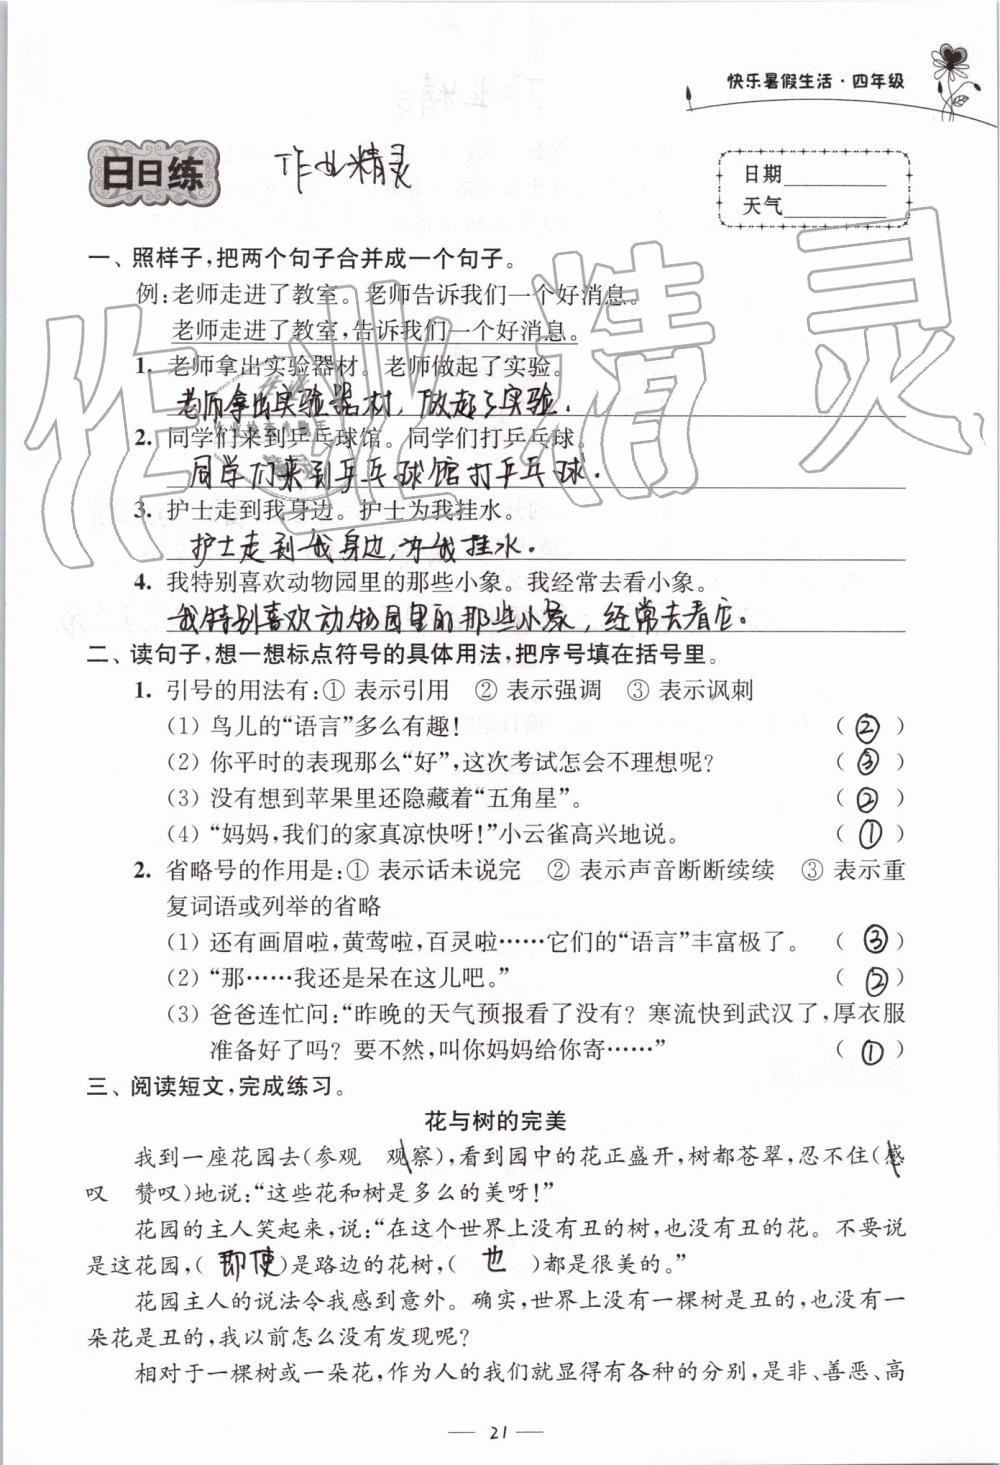 快乐暑假生活·四年级
日日练
作业精灵
日期
天气
一、照样子,把两个句子合并成一个句子。
例:老师走进了教室。老师告诉我们一个好消息。
老师走进了教室,告诉我们一个好消息。
1. 老师拿出实验器材。老师做起了实验。
老师拿出实验器材,做起了实验.
2. 同学们来到乒乓球馆。同学们打乒乓球。
同学们来到乒乓球馆打乒乓球.
3. 护士走到我身边。护士为我挂水。
护士走到我身边,为我挂水.
4. 我特别喜欢动物园里的那些小象。我经常去看小象。
我特别喜欢动物园里的那些小象,经常去看它。
二、读句子,想一想标点符号的具体用法,把序号填在括号里。
1. 引号的用法有:① 表示引用 ② 表示强调 ③ 表示讽刺
(1) 鸟儿的“语言”多么有趣! ( ② )
(2) 你平时的表现那么“好”,这次考试怎会不理想呢? ( ③ )
(3) 没有想到苹果里还隐藏着“五角星”。 ( ② )
(4) “妈妈,我们的家真凉快呀!”小云雀高兴地说。 ( ① )
2. 省略号的作用是:① 表示话未说完 ② 表示声音断断续续 ③ 表示重
复词语或列举的省略
(1) 还有画眉啦,黄莺啦,百灵啦……它们的“语言”丰富极了。 ( ③ )
(2) “那……我还是呆在这儿吧。” ( ② )
(3) 爸爸连忙问:“昨晚的天气预报看了没有? 寒流快到武汉了,厚衣服
准备好了吗? 要不然,叫你妈妈给你寄……” ( ① )
三、阅读短文,完成练习。
花与树的完美
我到一座花园去(参观 观察),看到园中的花正盛开,树都苍翠,忍不住(感
叹 赞叹)地说:“这些花和树是多么的美呀!”
花园的主人笑起来,说:“在这个世界上没有丑的树,也没有丑的花。不要说
是这花园,( 即使 )是路边的花树,( 也 )都是很美的。”
花园主人的说法令我感到意外。确实,世界上没有一棵树是丑的,也没有一
朵花是丑的,我以前怎么没有发现呢?
相对于一棵树或一朵花,作为人的我们就显得有各种的分别,是非、善恶、高
21
作业精灵